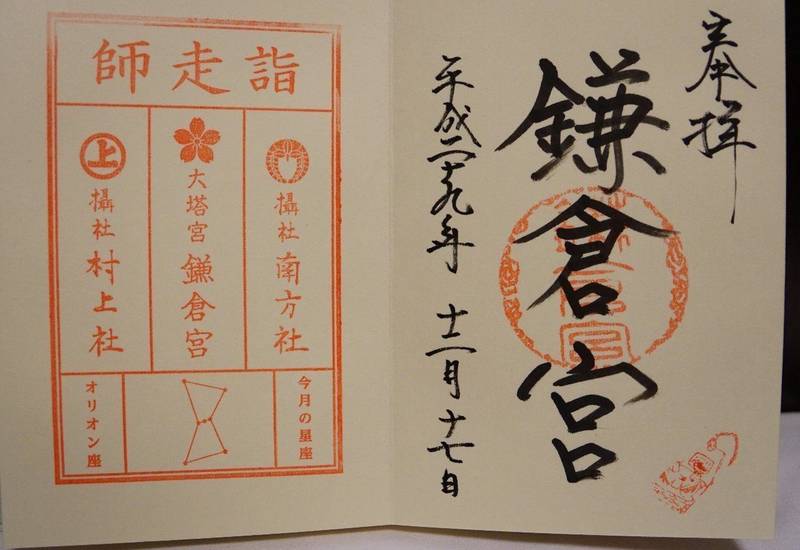 奉拝
鎌倉宮
平成二十九年 十二月 十七日
師走詣
攝社 南方社
大塔宮 鎌倉宮
上 攝社 村上社
今月の星座
オリオン座